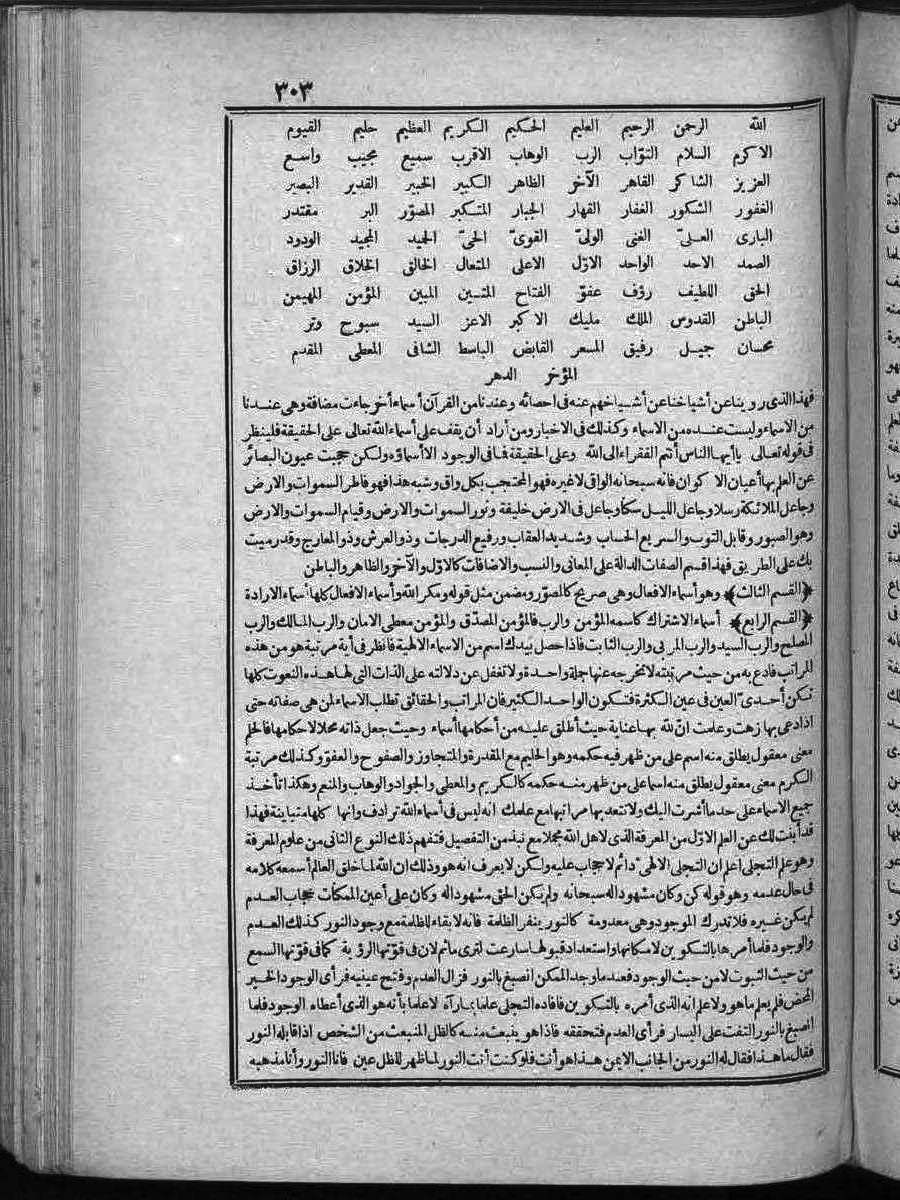 ٣٠٣
الله الرحمن الرحيم العليم الحكيم الكريم العظيم حليم القيوم
الاكرم السلام التوّاب الرب الوهاب الاقرب سميع مجيب واسع
العزيز الشاكر القاهر الآخر الظاهر الكبير الخبير القدير البصير
الغفور الشكور الغفار القهار الجبار المتكبر المصوّر البر مقتدر
البارى العلىّ الغنى الولىّ القوىّ الحىّ الحيد المجيد الودود
الصمد الاحد الواحد الاوّل الاعلى المتعال الخالق الخلاق الرزاق
الحق اللطيف رؤف عفوّ الفتاح المتين المبين المؤمن المهيمن
الباطن القدوس الملك مليك الاكبر الاعز السيد سبوح وتر
محسان جميل رفيق المسعر القابض الباسط الشافى المعطى المقدم
المؤخر الدهر
فهذا الذى روينا عن أشياخنا عن أشياخهم عنه فى احصائه وعندنا من القرآن أسماء أخر جاءت مضافة وهى عندنا
من الاسماء وليست عنده من الاسماء وكذلك فى الاخبار ومن أراد أن يقف على أسماء الله تعالى على الحقيقة فلينظر
فى قوله تعالى يا أيها الناس أنتم الفقراء الى الله وعلى الحقيقة فما فى الوجود الا أسماؤه ولكن حجبت عيون البصائر
عن العلم بها أعيان الاكوان فانه سبحانه الواقى لا غيره فهو المحتجب بكل واق وشبه هذا فهو فاطر السموات والارض
وجاعل الملائكة رسلا وجاعل الليل سكنا وجاعل فى الارض خليفة ونور السموات والارض وقيام السموات والارض
وهو الصبور وقابل التوب والسريع الحساب وشديد العقاب ورفيع الدرجات وذو العرش وذو المعارج وقد رميت
بك على الطريق فهذا قسم الصفات الدالة على المعانى والنسب والاضافات كالاوّل والآخر والظاهر والباطن
﴿القسم الثالث﴾ وهو أسماء الافعال وهى صريح كالمصوّر ومضمن مثل قوله ومكر الله وأسماء الافعال كلها أسماء الارادة
﴿القسم الرابع﴾ أسماء الاشتراك كاسمه المؤمن والرب فالمؤمن المصدّق والمؤمن معطى الامان والرب المالك والرب
المصلح والرب السيد والرب المربى والرب الثابت فاذا حصل بيدك اسم من الاسماء الالهية فانظر فى أية مرتبة هو من هذه
المراتب فادع به من حيث مرتبته لا تخرجه عنها جملة واحدة ولا تغفل عن دلالته على الذات التى لها هذه النعوت كلها
تكن أحدىّ العين فى عين الكثرة فتكون الواحد الكثير فان المراتب والحقائق تطلب الاسماء لمن هى صفاته حتى
اذا دعى بها زهت وعلمت انّ لله بها عناية حيث أطلق عليه من أحكامها أسماء وحيث جعل ذاته محلا لاحكامها فالحلم
معنى معقول يطلق منه اسم على من ظهر فيه حكمه وهو الحليم مع المقدرة والمتجاوز والصفوح والعفوّ وكذلك مرتبة
التكرم معنى معقول يطلق منه اسما على من ظهر منه حكمه كالكريم والمعطى والجواد والوهاب والمنعم وهكذا تأخذ
جميع الاسماء على حد ما أشرت اليك ولا تتعد بها مراتبها مع علمك انه ليس فى أسماء الله ترادف وانها كلها متباينة فهذا
قد أبنت لك عن العلم الاوّل من المعرفة الذى لاهل الله مجملا مع نبذ من التفصيل فتفهم ذلك النوع الثانى من علوم المعرفة
وهو علم التجلى اعلم ان التجلى الالهى دائم لا حجاب عليه ولكن لا يعرف انه هو وذلك ان الله لما خلق العالم أسمعه كلامه
فى حال عدمه وهو قوله كن وكان مشهودا له سبحانه ولم يكن الحق مشهودا له وكان على أعين الممكنات حجاب العدم
لم يكن غيره فلا تدرك الموجود وهى معدومة كالنور ينفر الظلمة فانه لا بقاء للظلمة مع وجود النور كذلك العدم
والوجود فلما أمرها بالتكوين لامكانها واستعداد قبولها سارعت لترى ما ثم لان فى قوّتها الرؤية كما فى قوّتها السمع
من حيث الثبوت لا من حيث الوجود فعند ما وجد الممكن انصبغ بالنور فزال العدم وفتح عينيه فرأى الوجود الخير
المحض فلم يعلم ما هو ولا علم انه الذى أمره بالتكوين فافاده التجلى علما بما رآه لا علما بأنه هو الذى أعطاه الوجود فلما
انصبغ بالنور التفت على اليسار فرأى العدم فتحققه فاذا هو ينبعث منه كالظل المنبعث من الشخص اذا قابله النور
فقال ما هذا فقال له النور من الجانب الايمن هذا هو أنت فلو كنت أنت النور لما ظهر للظل عين فانا النور وأنا مذهبه